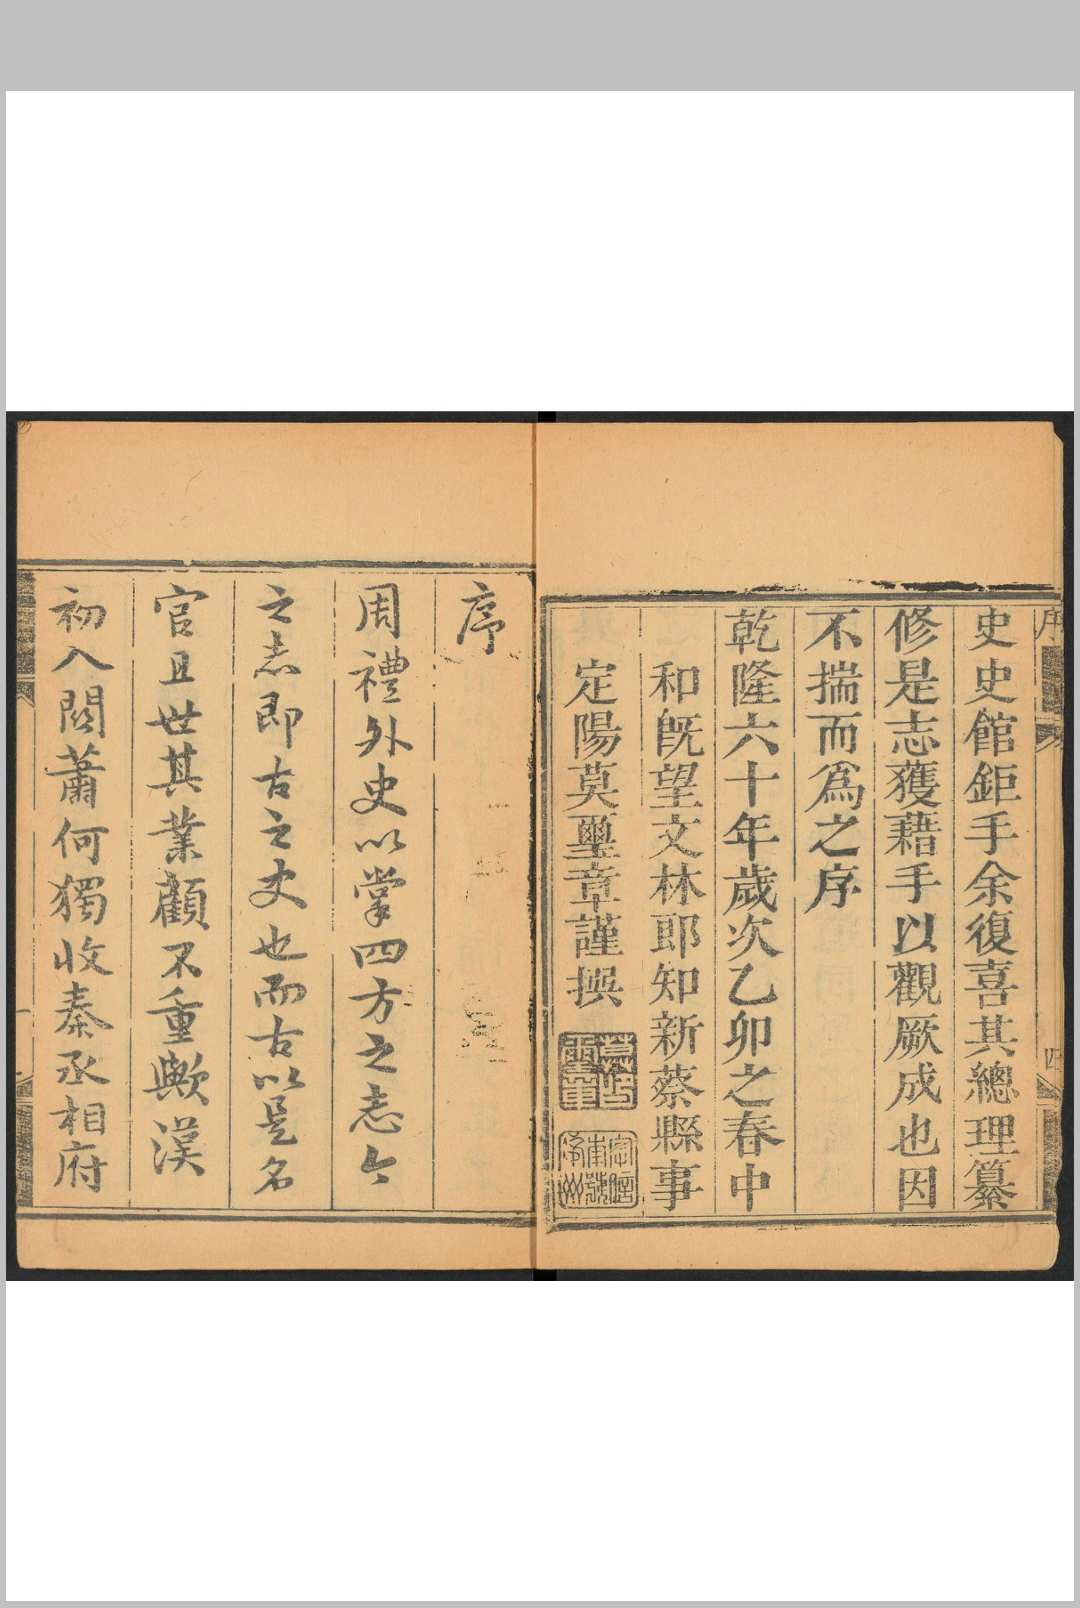 史史館鉅手余復喜其總理纂
修是志獲藉手以觀厥成也因
不揣而爲之序
乾隆六十年歲次乙卯之春中
和旣望文林郎知新蔡縣事
定陽莫璽章謹撰
序
四
序
周禮外史以掌四方之志今
之志即古之史也而古以是名
官且世其業顧不重歟漢
初入關蕭何獨收秦丞相府